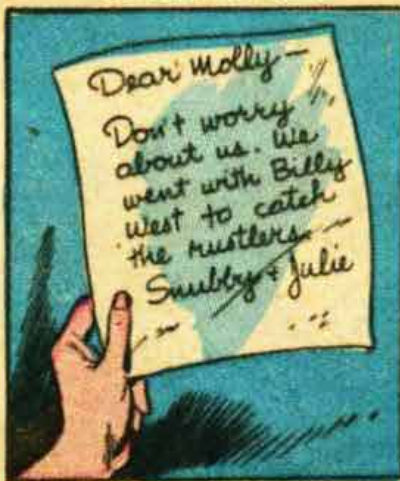 Dear Molly —
Don't worry
about us. We
went with Billy
West to catch
the rustlers —
Snubby + Julie